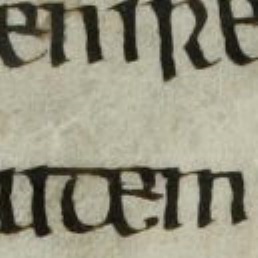 enire
utem